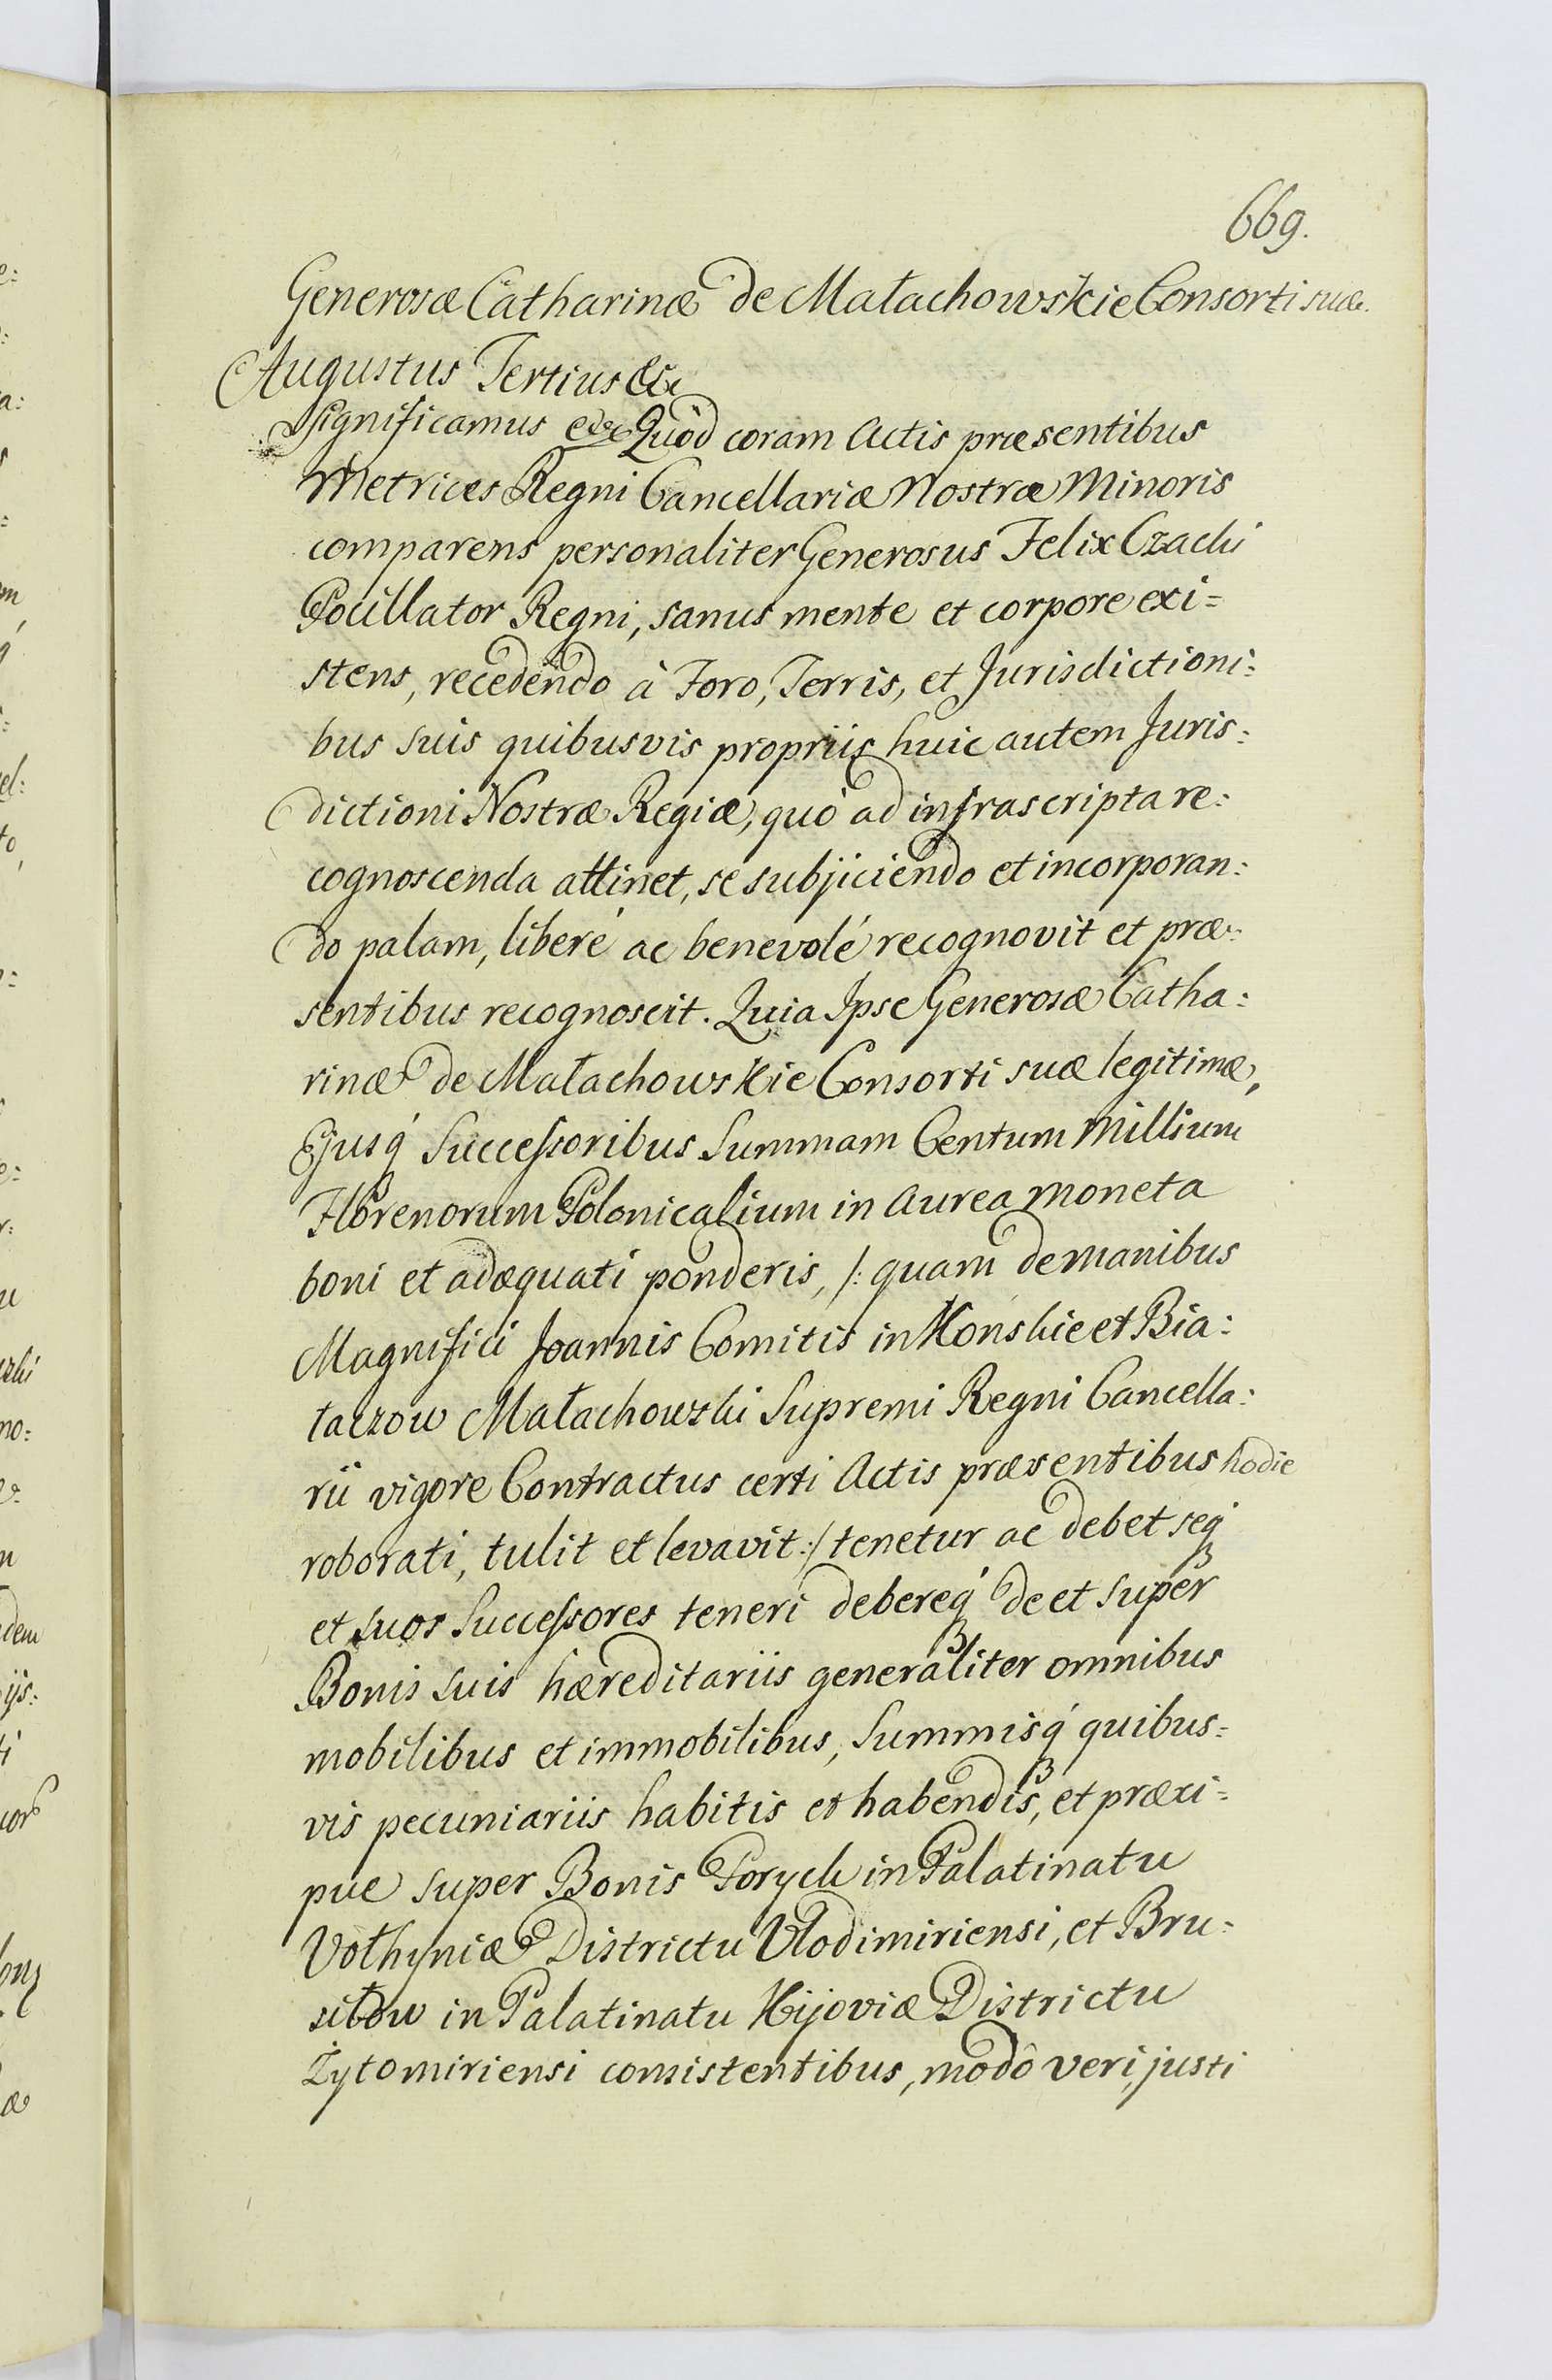 669.
Generosæ Catharinæ de Małachowskie Consorti suæ.
Augustus Tertius &c
Significamus &c Quòd coram Actis præsentibus
Metrices Regni Cancellariæ Nostræ Minoris
comparens personaliter Generosus Felix Czacki
Pocillator Regni, sanus mente et corpore exi=
stens, recedendo à Foro, Terris, et Jurisdictioni:
bus suis quibusvis propriis huic autem Juris:
dictioni Nostræ Regiæ, quò ad infrascripta re:
cognoscenda attinet, se subjiciendo et incorporan:
do palam, liberé ac benevolé recognovit et præ:
sentibus recognoscit. Quia Ipse Generosæ Catha:
rinæ de Małachowskie Consorti suæ legitimæ,
Ejusq́ Successoribus Summam Centum Millium
Florenorum Polonicalium in Aurea Moneta
boni et adæquati ponderis, /: quam de manibus
Magnifici Joannis Comitis in Konskie et Bia:
łaczow Małachowski Supremi Regni Cancella:
rii vigore Contractus certi Actis præsentibus hodie
roborati, tulit et levavit :/ tenetur ac debet seq́
et suos Successores teneri debereq́ de et super
Bonis suis hæreditariis generaliter omnibus
mobilibus et immobilibus, Summisq́ quibus=
vis pecuniariis habitis et habendis, et præci=
pue super Bonis Poryck in Palatinatu
Vołhyniæ Districtu Vlodimiriensi, et Bru=
siłow in Palatinatu Kijoviæ Districtu
Żytomiriensi consistentibus, modô veri, justi